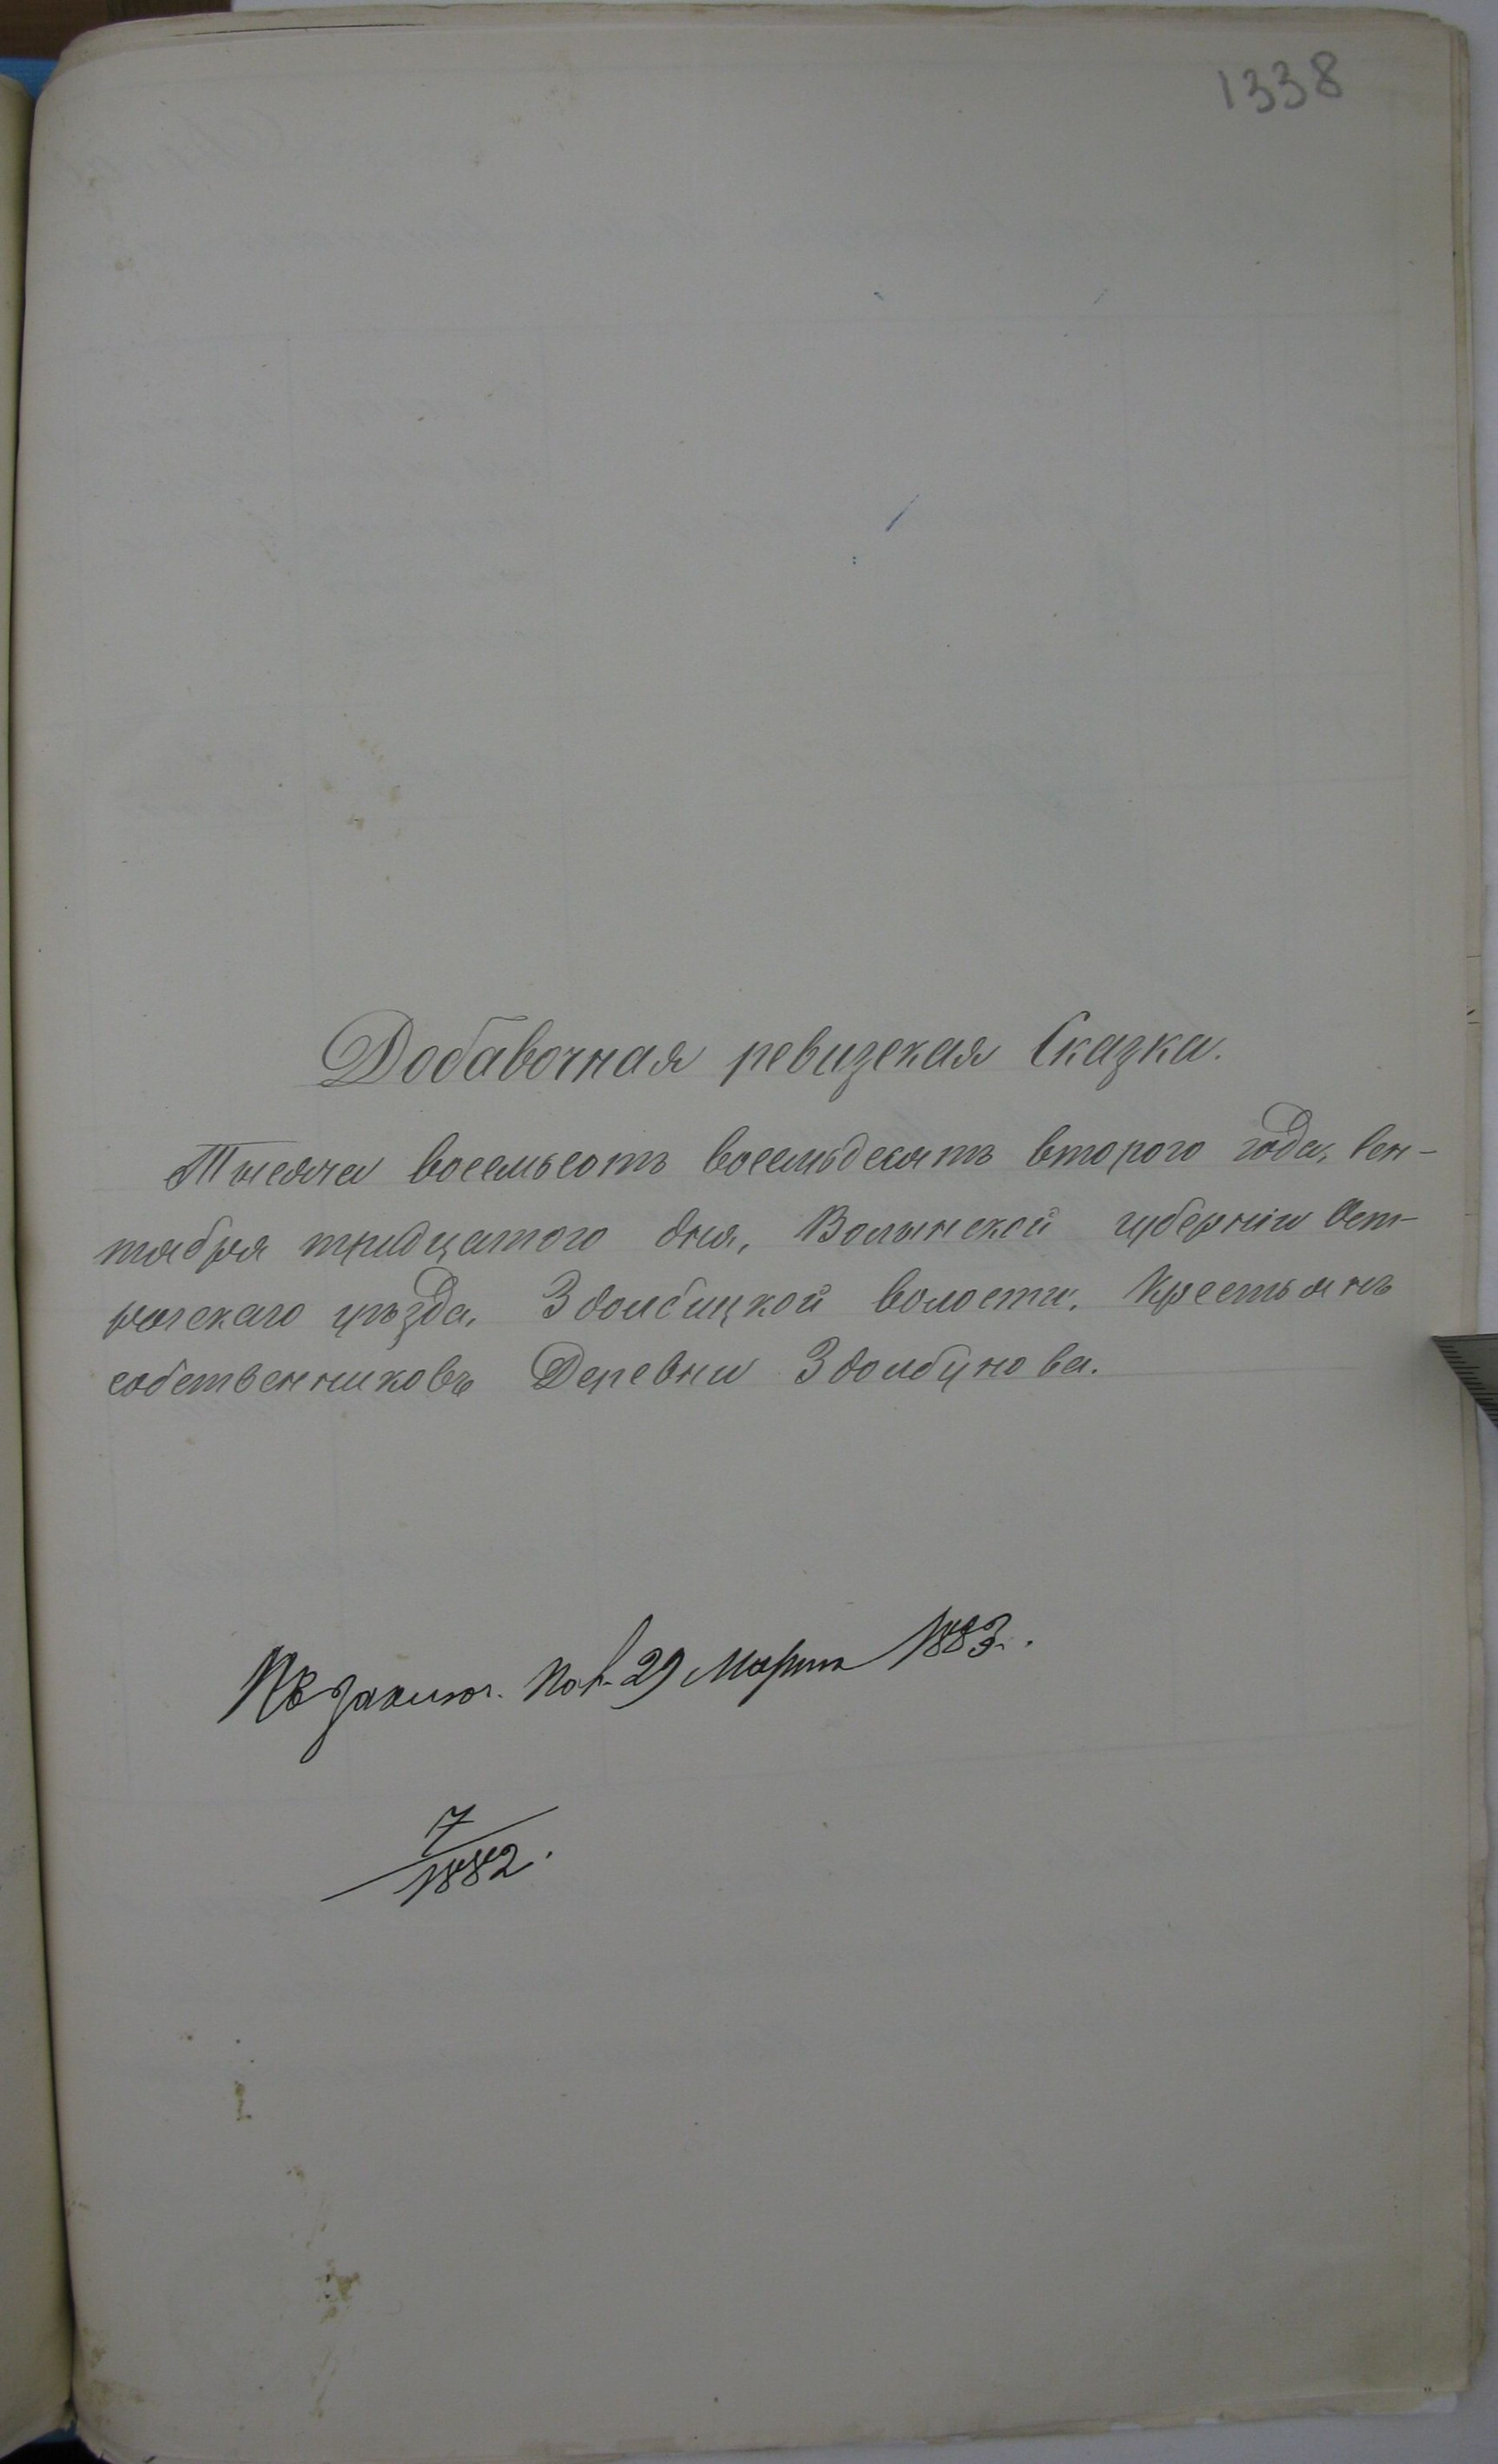 1338
Добавочная ревизская Сказка.
Тысяча восемьсотъ восемьдесятъ второго года, Сен-
тября тридцатого дня, Волынской губерніи Ост-
рогскаго уѣзда, Здолбицкой волости, Крестьянъ
собственниковъ Деревни Здолбунова.
Къ заключ. 29 Марта 1883.
7
1882.